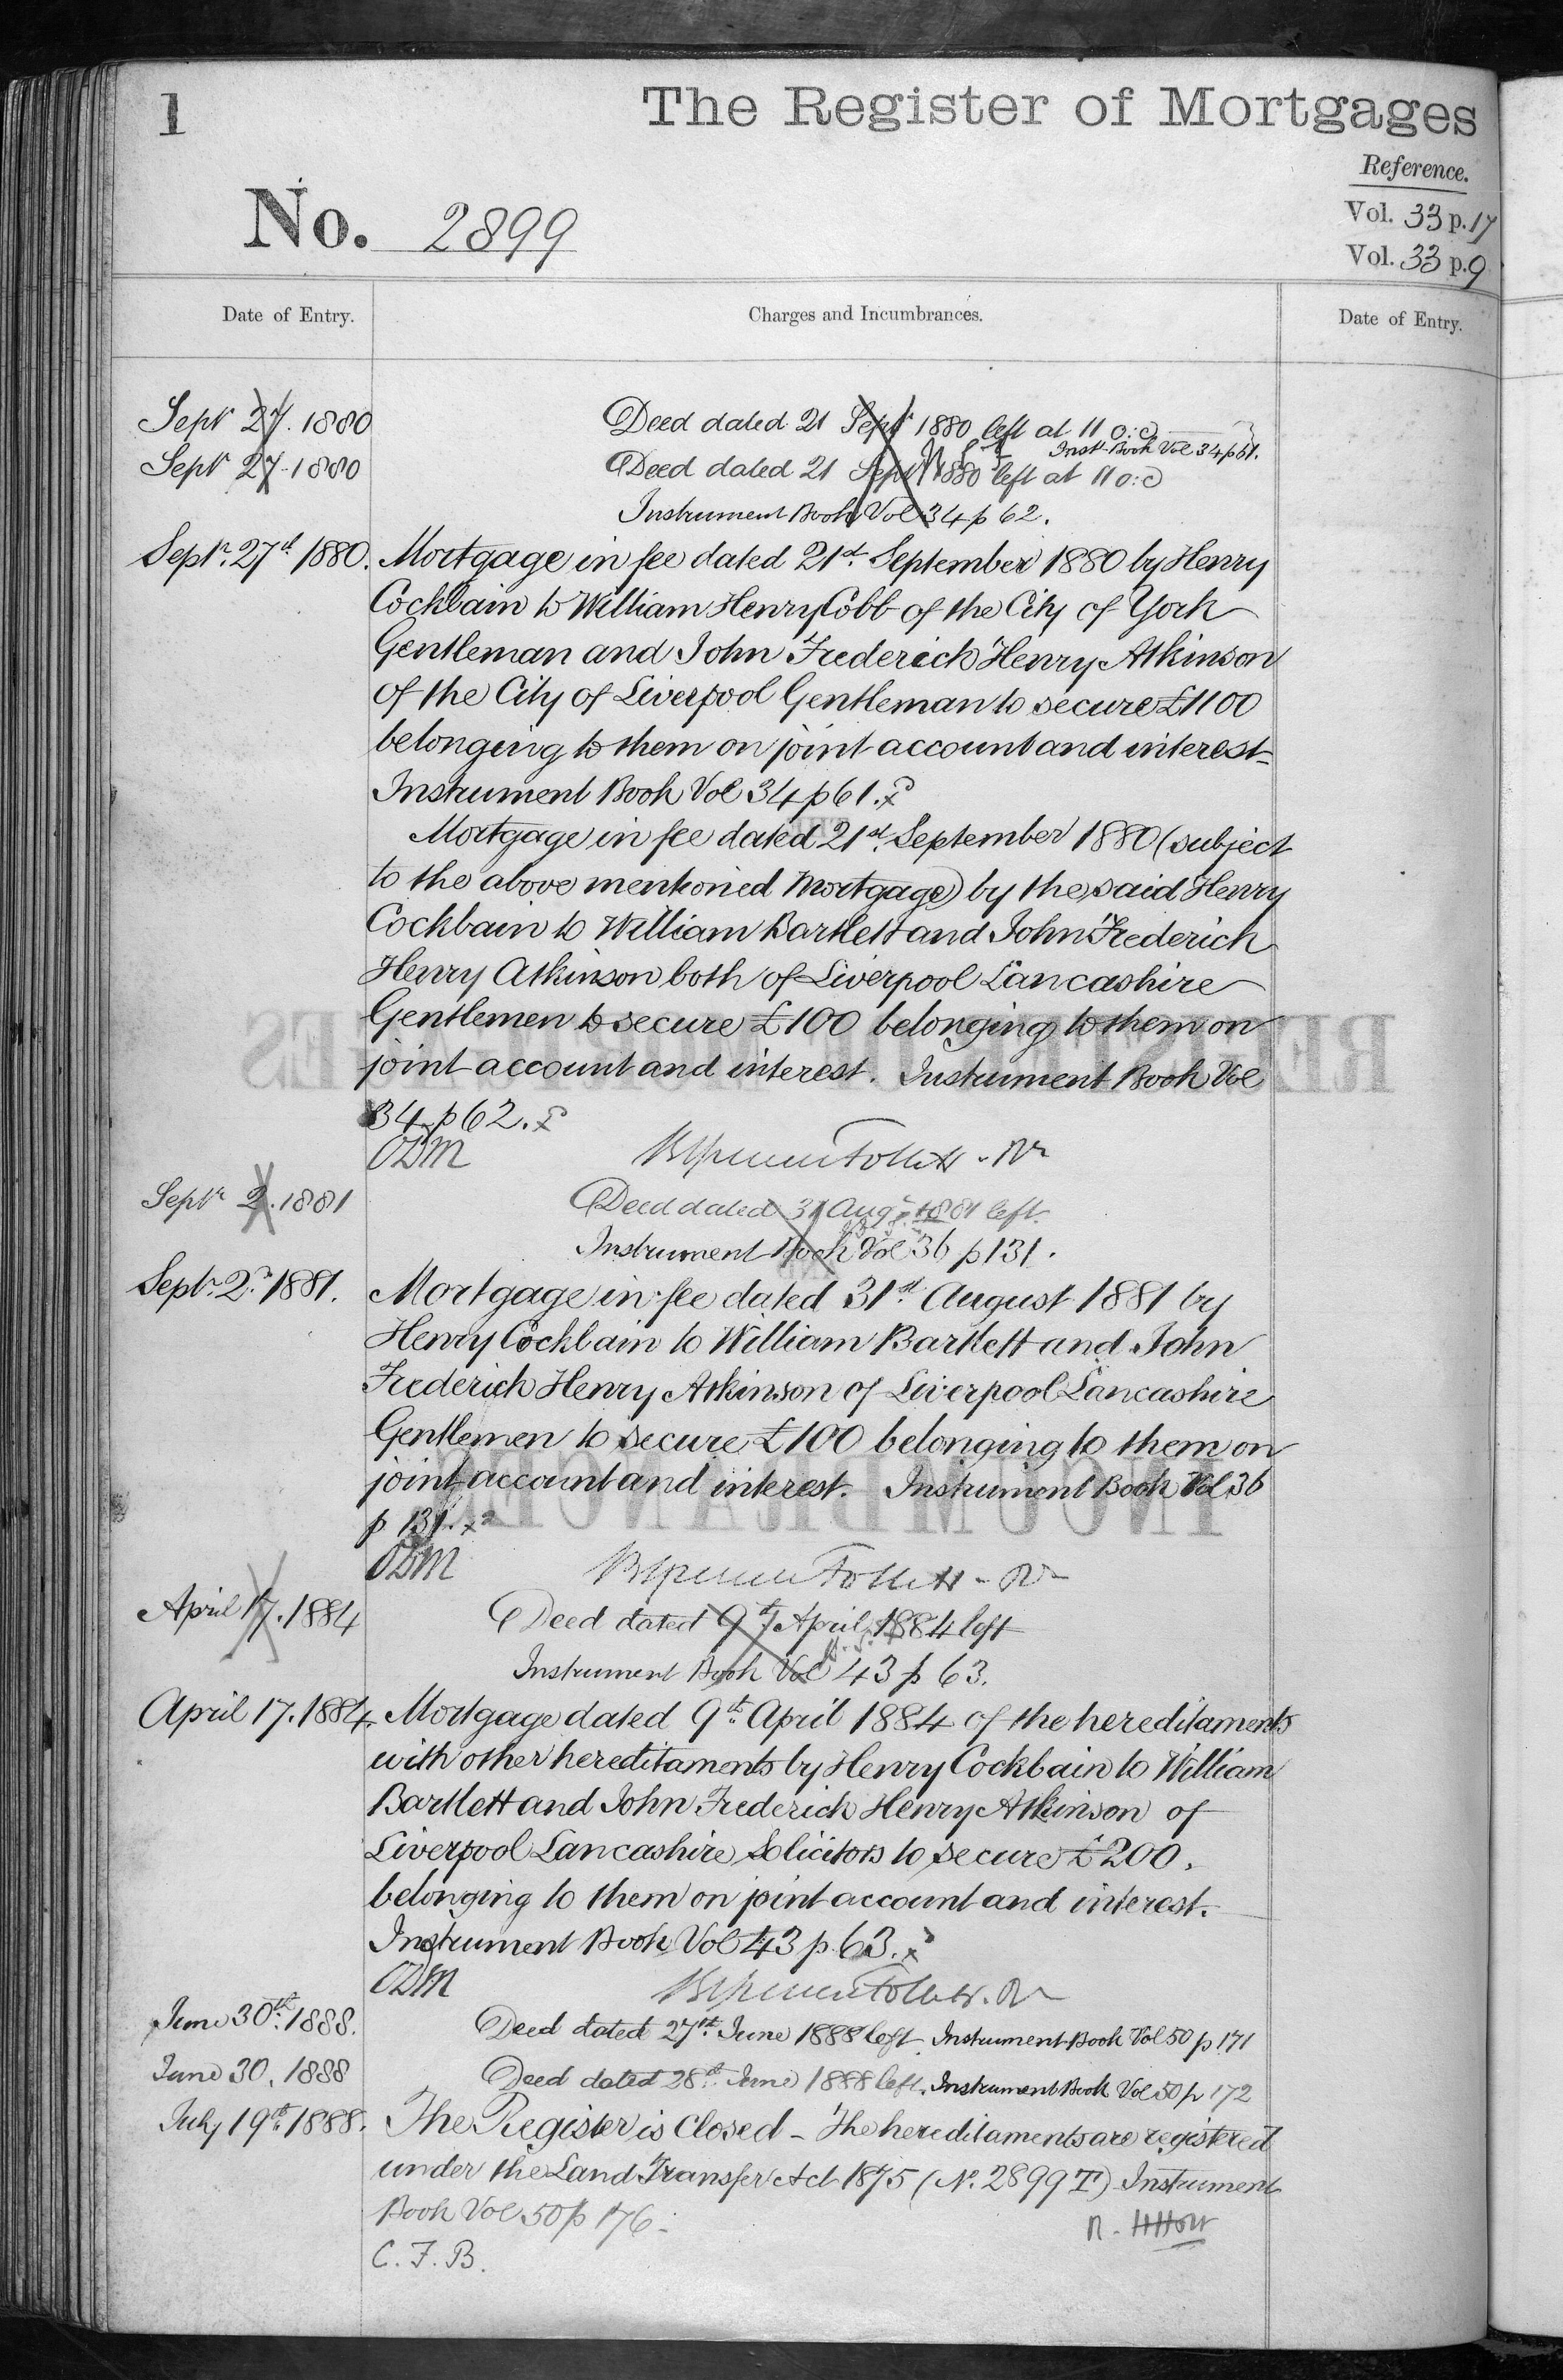 1
The Register of Mortgages
Reference.
No. 2899
Vol. 33 p. 17
Vol. 33 p. 9
Date of Entry.
Charges and Incumbrances.
Date of Entry.
Sept 27. 1880 Deed dated 21 Sept 1880 left at 11 o:c
Inst. Book Vol 34 p 61.
Sept 27. 1880 Deed dated 21 Sept 1880 left at 11 o:c
Instrument Book Vol 34 p 62.
Septr. 27th 1880. Mortgage in fee dated 21st September 1880 by Henry
Cockbain to William Henry Cobb of the City of York
Gentleman and John Frederick Henry Atkinson
of the City of Liverpool Gentleman to secure £1100
belonging to them on joint account and interest
Instrument Book Vol 34 p 61.
Mortgage in fee dated 21st September 1880 (subject
to the above mentioned Mortgage) by the said Henry
Cockbain to William Bartlett and John Frederick
Henry Atkinson both of Liverpool Lancashire
Gentlemen to secure £100 belonging to them on
joint account and interest. Instrument Book Vol
34 p 62.
Septr 2. 1881 Deed dated 31 Aug 1881 left
Instrument Book Vol 36 p 131.
Septr 2nd 1881. Mortgage in fee dated 31st August 1881 by
Henry Cockbain to William Bartlett and John
Frederick Henry Atkinson of Liverpool Lancashire
Gentlemen to secure £100 belonging to them on
joint account and interest. Instrument Book Vol 36
p 131.
April 17. 1884 Deed dated 9th April 1884 left
Instrument Book Vol 43 p 63.
April 17. 1884. Mortgage dated 9th April 1884 of the hereditaments
with other hereditaments by Henry Cockbain to William
Bartlett and John Frederick Henry Atkinson of
Liverpool Lancashire Solicitors to secure £200.
belonging to them on joint account and interest.
Instrument Book Vol 43 p 63.
June 30th 1888. Deed dated 27th June 1888 left. Instrument Book Vol 50 p 171
June 30. 1888 Deed dated 28th June 1888 left. Instrument Book Vol 50 p 172
July 19th 1888. The Register is Closed - The hereditaments are registered
under the Land Transfer Act 1875 (No. 2899 T) Instrument
Book Vol 50 p 176.
C. F. B.